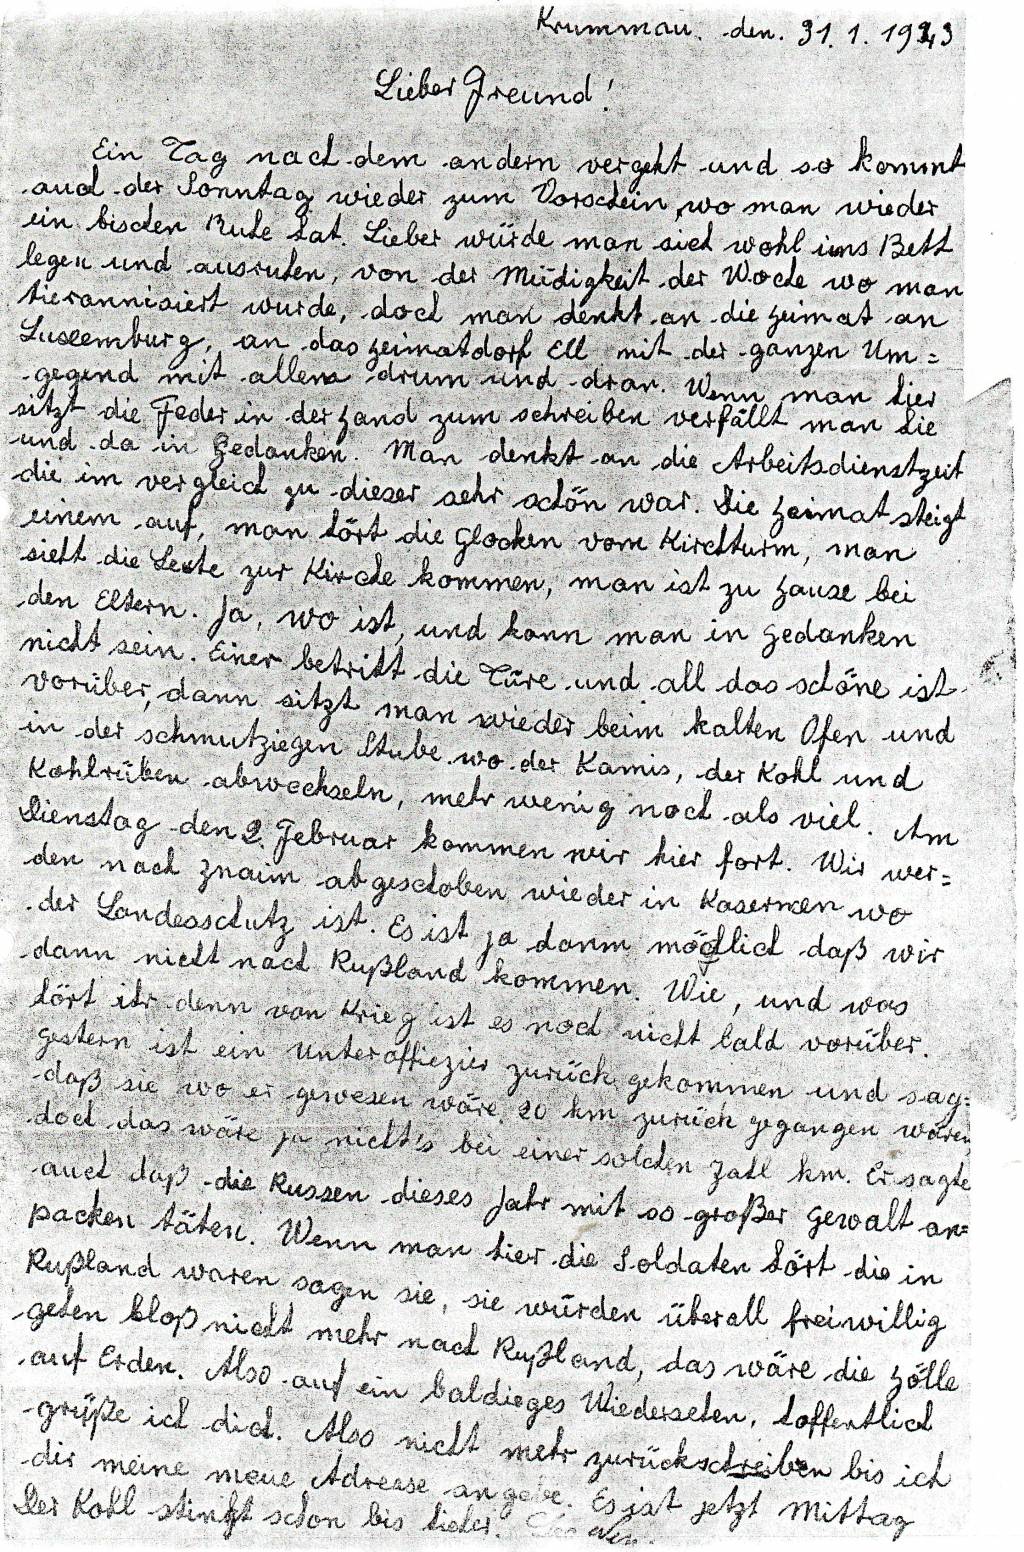 Krummau. den. 31. 1. 1943
Lieber Freund!
Ein Tag nach dem andern vergeht und so kommt
auch der Sonntag wieder zum Vorschein, wo man wieder
ein bischen Ruhe hat. Lieber würde man sich wohl ins Bett
legen und ausruhen, von der Müdigkeit der Woche wo man
tierannisiert wurde, doch man denkt an die Heimat an
Luxemburg, an das Heimatdorf Ell mit der ganzen Um=
gegend mit allem drum und dran. Wenn man hier
sitzt die Feder in der Hand zum schreiben verfällt man hie
und da in Gedanken. Man denkt an die Arbeitsdienstzeit
die im vergleich zu dieser sehr schön war. Die Heimat steigt
einem auf, man hört die Glocken vom Kirchturm, man
sieht die Leute zur Kirche kommen, man ist zu Hause bei
den Eltern. Ja, wo ist, und kann man in Gedanken
nicht sein. Einer betritt die Türe und all das schöne ist
vorüber, dann sitzt man wieder beim kalten Ofen und
in der schmutziegen Stube wo der Kamis, der Kohl und
Kohlrüben abwechseln, mehr wenig noch als viel. Am
Dienstag den 2. Februar kommen wir hier fort. Wir wer=
den nach Znaim abgeschoben wieder in Kasernen wo
der Landesschutz ist. Es ist ja dann möglich daß wir
dann nicht nach Rußland kommen. Wie, und was
hört ihr denn von Krieg ist es noch nicht bald vorüber.
Gestern ist ein Unteroffiezier zurück gekommen und sag=
daß sie wo er gewesen wäre 20 km zurück gegangen wären
doch das wäre ja nicht's bei einer solchen Zahl km. Er sagte
auch daß die Russen dieses Jahr mit so großer Gewalt an=
packen täten. Wenn man hier die Soldaten hört die in
Rußland waren sagen sie, sie würden überall freiwillig
gehen bloß nicht mehr nach Rußland, das wäre die Hölle
auf Erden. Also auf ein baldieges Wiedersehen, hoffentlich
grüße ich dich. Also nicht mehr zurückschreiben bis ich
dir meine neue Adresse angebe. Es ist jetzt Mittag
Der Kohl stinkt schon bis hieher.